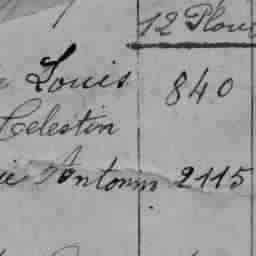 12 Plou
Louis 840
Celestin
Antonin 2115